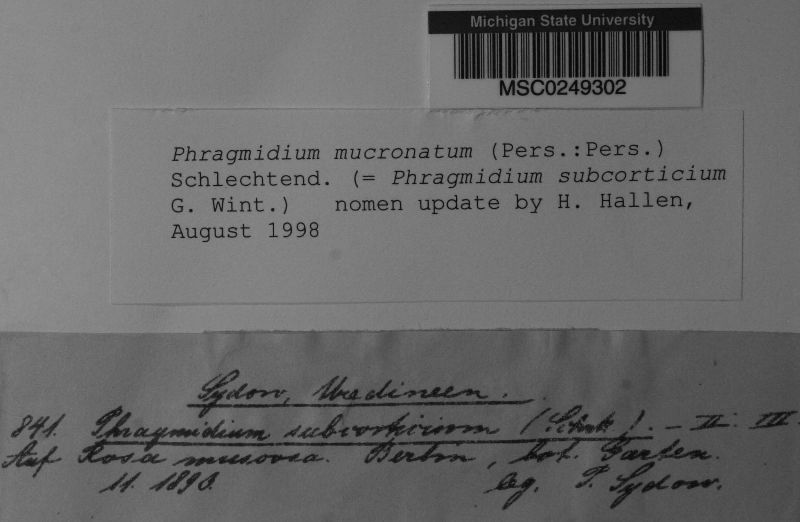 Michigan State University
MSC0249302
Phragmidium mucronatum (Pers.:Pers.)
Schlechtend. (= Phragmidium subcorticium
G. Wint.) nomen update by H. Hallen,
August 1998
Sydow, Uredineen.
841. Phragmidium subcorticium (Schrk.). - II. III.
Auf Rosa muscosa. Berlin, bot. Garten.
11. leg. P. Sydow.